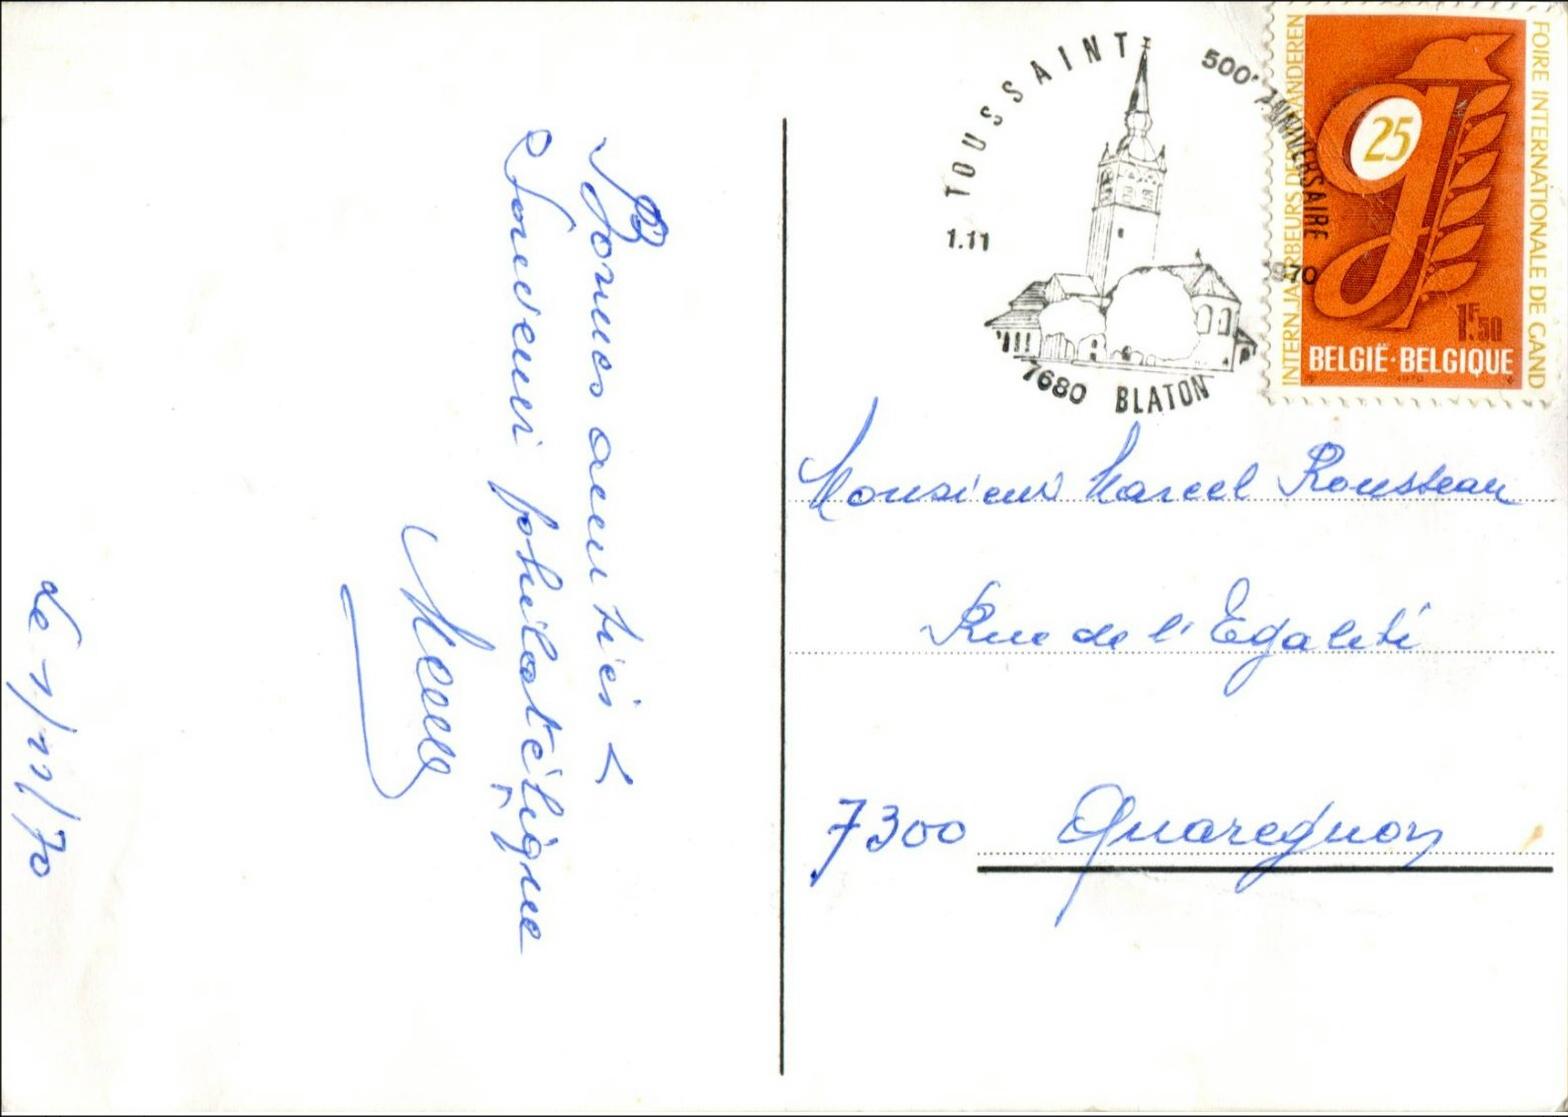 Bonnes amitiés &
Souvenir philatélique
le 1/11/70
TOUSSAINT
500e ANNIVERSAIRE
1.11
1970
7680 BLATON
INTERN. JAARBEURS DER VLAANDEREN
FOIRE INTERNATIONALE DE GAND
25
1F50
BELGIË·BELGIQUE
1970
Monsieur Marcel Rousseau
Rue de l'Egalité
7300 Quaregnon